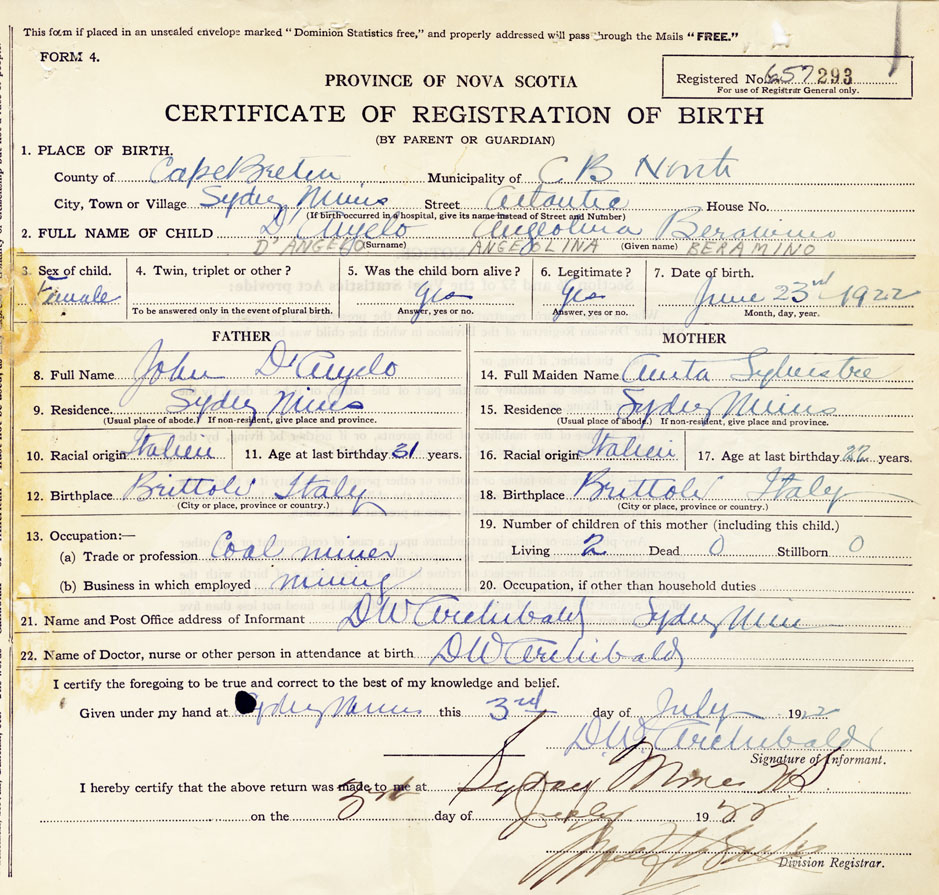 This form if placed in an unsealed envelope marked "Dominion Statistics free," and properly addressed will pass through the Mails "FREE."
FORM 4.
PROVINCE OF NOVA SCOTIA
Registered No. 657 293
For use of Registrar General only.
CERTIFICATE OF REGISTRATION OF BIRTH
(BY PARENT OR GUARDIAN)
1. PLACE OF BIRTH.
County of Cape Breton Municipality of C B North
City, Town or Village Sydney Mines Street Atlantic House No.
(If birth occurred in a hospital, give its name instead of Street and Number)
2. FULL NAME OF CHILD D'Angelo Angeolina Beramino
D'ANGELO (Surname) ANGEOLINA (Given name) BERAMINO
3. Sex of child. 4. Twin, triplet or other? 5. Was the child born alive? 6. Legitimate? 7. Date of birth.
Female Yes Yes June 23rd 1922
To be answered only in the event of plural birth. Answer, yes or no. Answer, yes or no. Month, day, year.
FATHER
8. Full Name John D'Angelo
9. Residence Sydney Mines
(Usual place of abode.) If non-resident, give place and province.
10. Racial origin Italien 11. Age at last birthday 31 years.
12. Birthplace Brittole Italy
(City or place, province or country.)
13. Occupation:—
(a) Trade or profession Coal miner
(b) Business in which employed mining
MOTHER
14. Full Maiden Name Anita Sylvestre
15. Residence Sydney Mines
(Usual place of abode.) If non-resident, give place and province.
16. Racial origin Italien 17. Age at last birthday 22 years.
18. Birthplace Brittole Italy
(City or place, province or country.)
19. Number of children of this mother (including this child.)
Living 2 Dead 0 Stillborn 0
20. Occupation, if other than household duties
21. Name and Post Office address of Informant DW Archibald Sydney Mines
22. Name of Doctor, nurse or other person in attendance at birth DW Archibald
I certify the foregoing to be true and correct to the best of my knowledge and belief.
Given under my hand at Sydney Mines this 3rd day of July 1922
DW Archibald
Signature of Informant.
I hereby certify that the above return was made to me at Sydney Mines NS
on the 3rd day of July 1922.
Division Registrar.